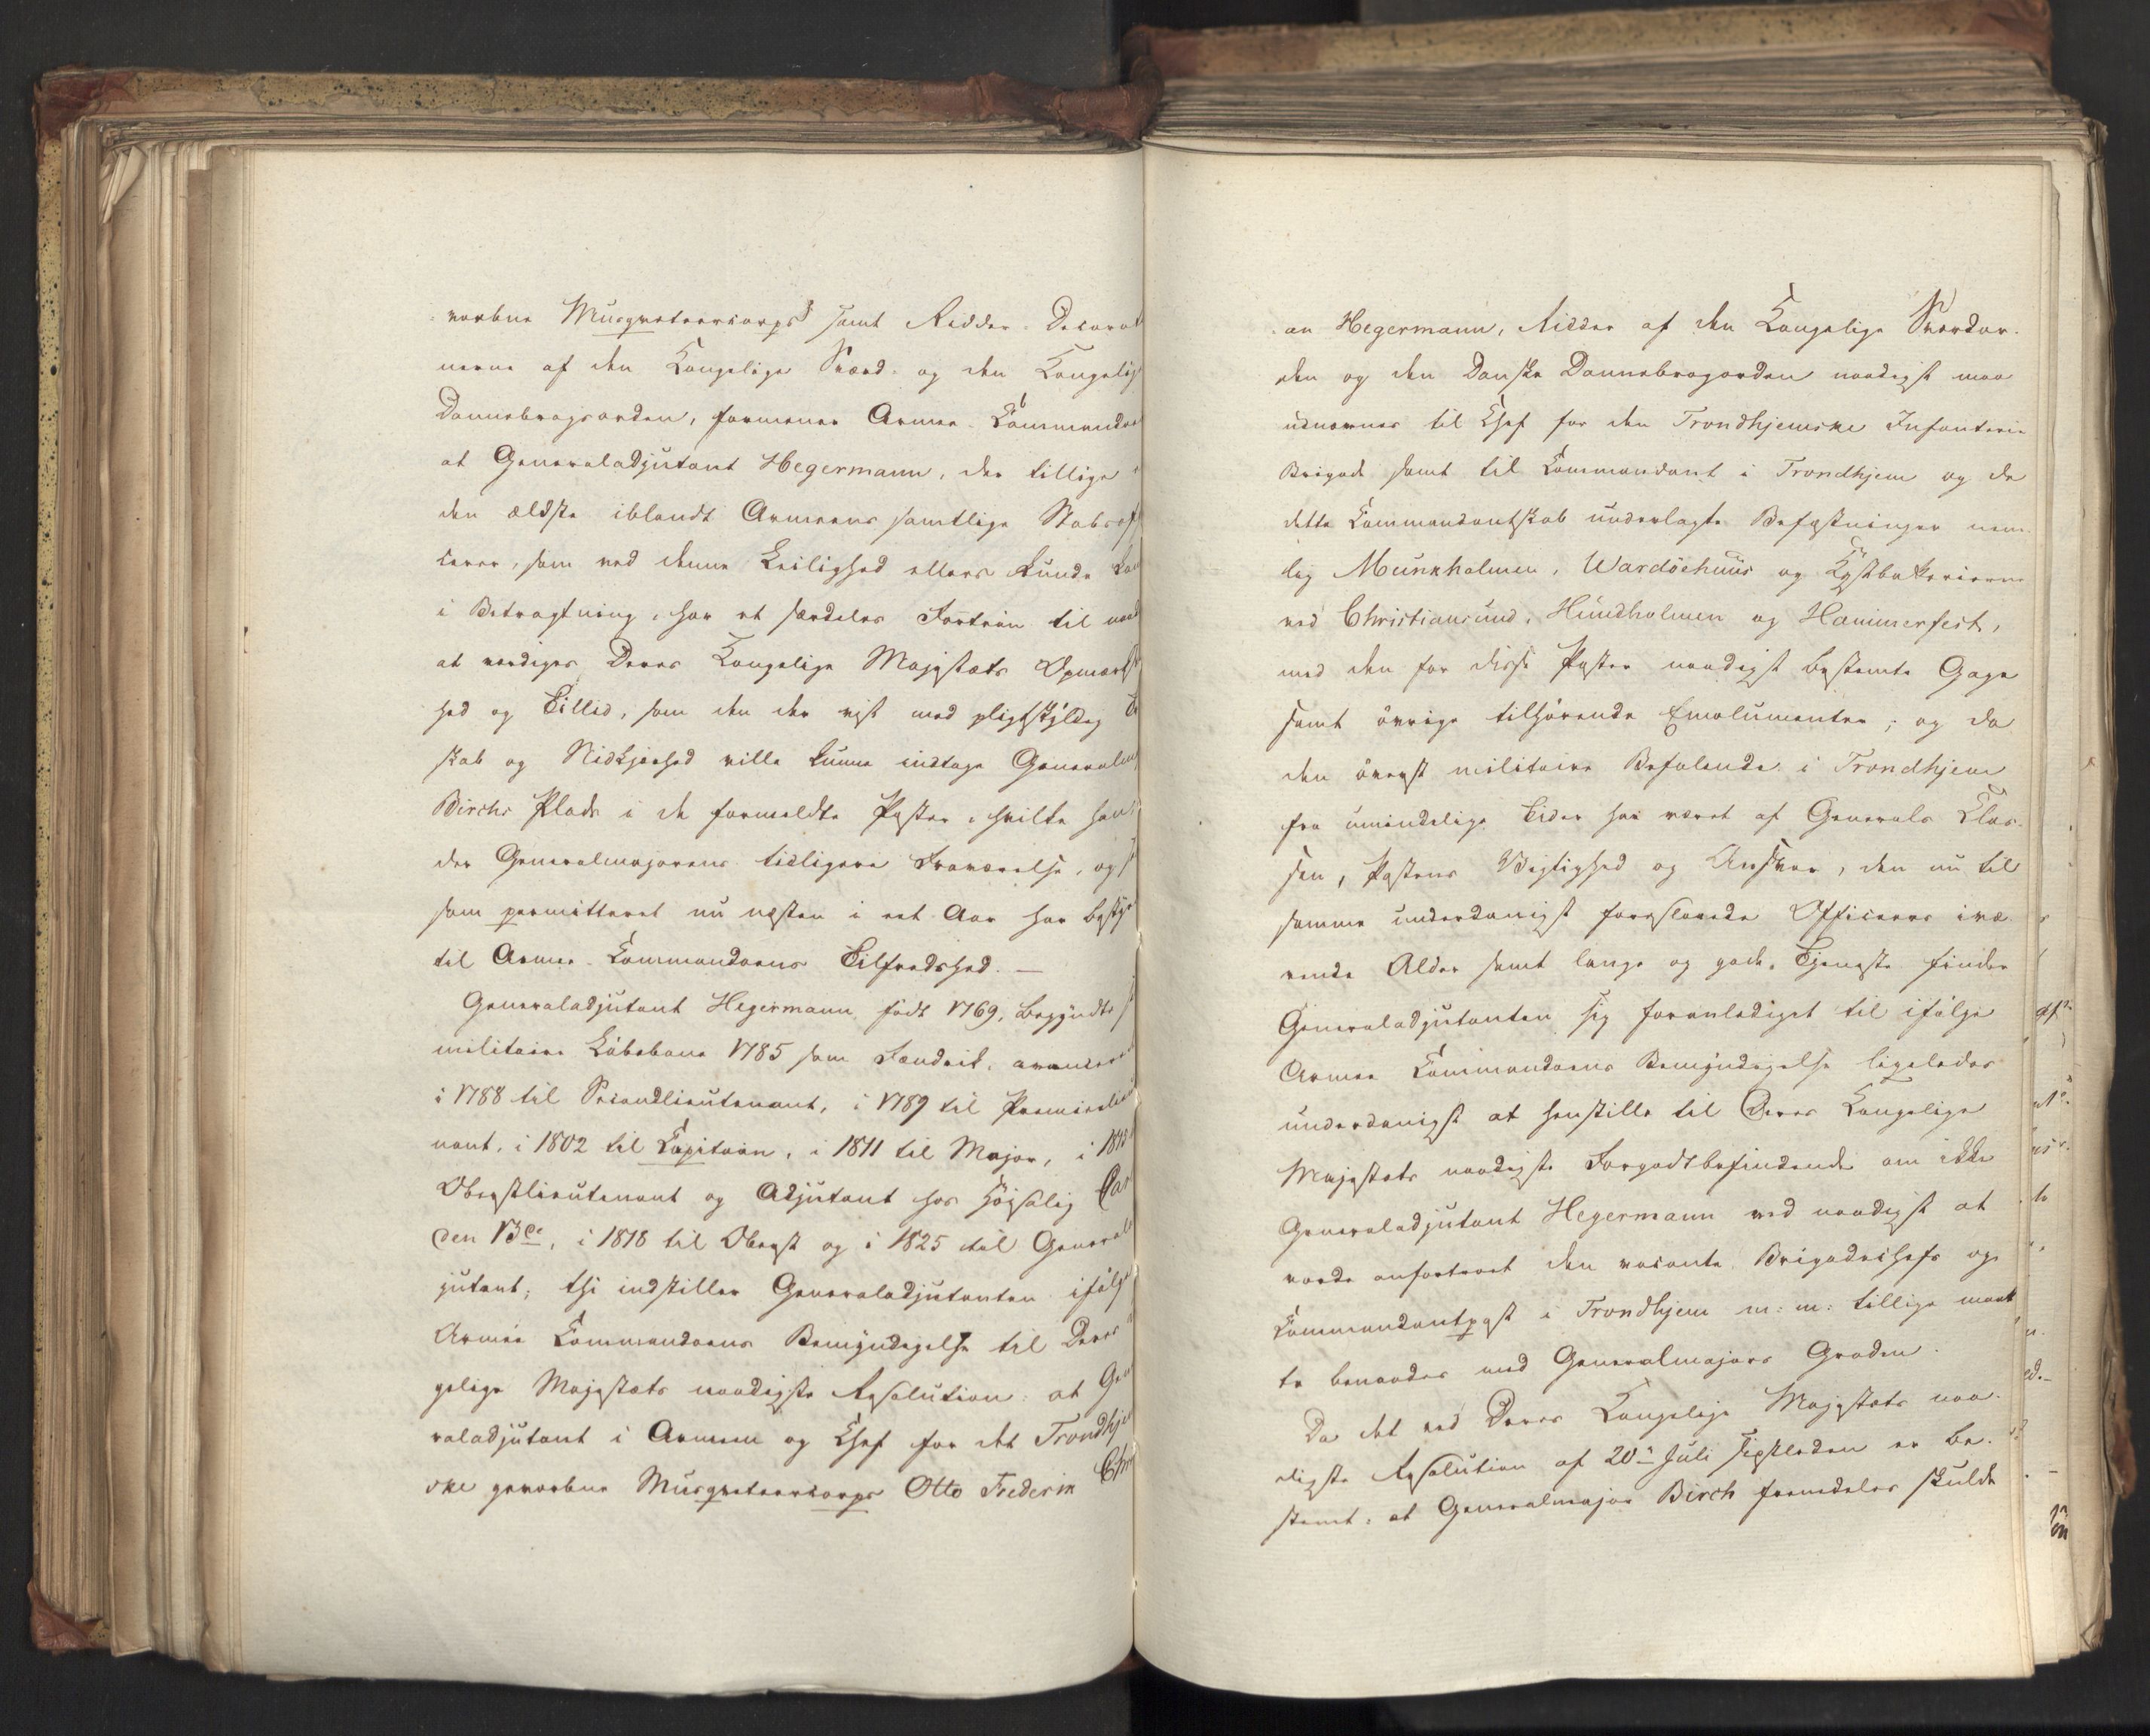 vorbne Musqueteercorps samt Ridder-Decorat
nerne af den Kongelige Sværd- og den Kongelig
Dannebrogsorden, formener Armee-Commandoe
at Generaladjutant Hegermann, der tillige
den ældste iblandt Armeens samtlige Stabsof
cerer, som ved denne Leilighed ellers kunde kom
i Betragtning, har et særdeles Fortrin til naad
at værdiges Deres Kongelige Majestæts Opmærks
hed og Tillid, som den der vist med pligtskyldig
skab og Nidkjærhed ville kunne indtage General
Birchs Plads i de formeldte Poster, hvilke han
der Generalmajorens tidligere Fraværelse, og
som permitteret nu næsten i eet Aar har bestyr
til Armee-Commandoens Tilfredshed. —
Generaladjutant Hegermann, født 1769, begyndte
militaire Løbebane 1785 som Fændrik, avancere
i 1788 til Secondlieutenant, i 1789 til Premierlieu
nant, i 1802 til Capitain, i 1811 til Major, i
Oberstlieutenant og Adjutant hos Høisalig Car
den 13de, i 1818 til Oberst og i 1825 til General
jutant; thi indstiller Generaladjutanten ifølge
Armée Commandoens Bemyndigelse til Deres
gelige Majestæts naadigste Resolution: at Gen
raladjutant i Armeen og Chef for det Trondhje
ske gevorbne Musqueteercorps Otto Frederik Chri
an Hegermann, Ridder af den Kongelige Sværdor-
den og den Danske Dannebrogorden naadigst maa
udnævnes til Chef for den Trondhjemske Infanterie
Brigade samt til Commandant i Trondhjem og de
dette Commandantskab underlagte Befæstninger nem-
lig Munkholmen, Wardöehuus og Kystbatterierne
ved Christiansund, Hundholmen og Hammerfest,
med den for disse Poster naadigst bestemte Gage
samt övrige tilhörende Emolumenter; og da
den överst militaire Befalende i Trondhjem
fra umindelige Tider har været af Generals Clas-
sen, Postens Vigtighed og Ansvar, den nu til
samme underdanigst foreslaaede Officeers ivæ
rende Alder samt lange og gode Tjeneste finder
Generaladjutanten sig foranlediget til ifølge
Armee Commandoens Bemyndigelse ligeledes
underdanigst at henstille til Deres Kongelige
Majestæts naadigste Forgodtbefindende om ikke
Generaladjutant Hegermann ved naadigst at
vorde anfortroet den vacante Brigadechefs og
Commandantpost i Trondhjem m: m: tillige maat
te benaades med Generalmajors Graden.
Da det ved Deres Kongelige Majestæts naa-
digste Resolution af 20de Juli sidstleden er be-
stemt: at Generalmajor Birch fremdeles skulde